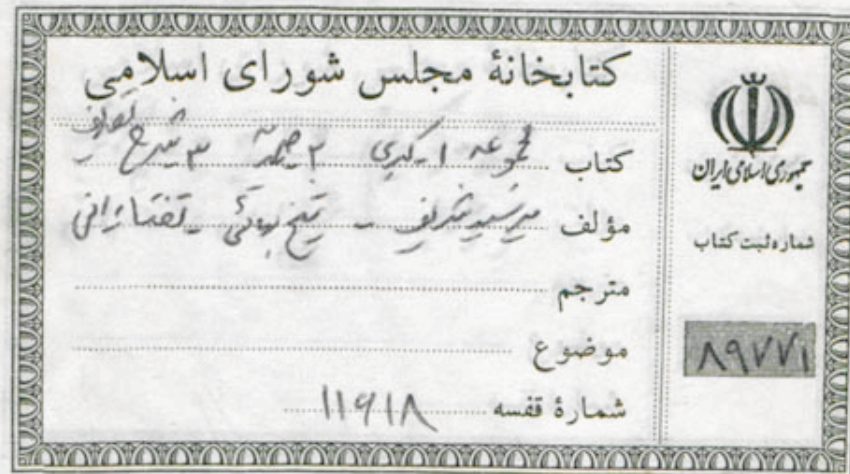 کتابخانهٔ مجلس شورای اسلامی
کتاب مجموعه ۱ـ کبری ۲ـ صمدیه ۳ـ شرح تصریف
مؤلف میر سید شریف ـ شیخ بهائی ـ تفتازانی
مترجم
موضوع
شمارهٔ قفسه ۱۱۶۱۸
جمهوری اسلامی ایران
شماره ثبت کتاب
۸۹۷۷۱